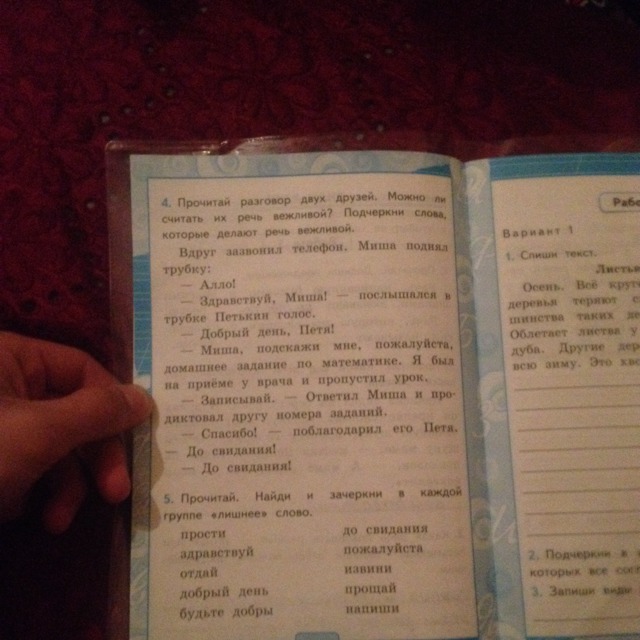 4. Прочитай разговор двух друзей. Можно ли
считать их речь вежливой? Подчеркни слова,
которые делают речь вежливой.
Вдруг зазвонил телефон. Миша поднял
трубку:
— Алло!
— Здравствуй, Миша! — послышался в
трубке Петькин голос.
— Добрый день, Петя!
— Миша, подскажи мне, пожалуйста,
домашнее задание по математике. Я был
на приёме у врача и пропустил урок.
— Записывай. — Ответил Миша и про-
диктовал другу номера заданий.
— Спасибо! — поблагодарил его Петя.
— До свидания!
— До свидания!
5. Прочитай. Найди и зачеркни в каждой
группе «лишнее» слово.
прости
здравствуй
отдай
добрый день
будьте добры
до свидания
пожалуйста
извини
прощай
напиши
Вариант 1
1. Спиши текст.
Осень. Всё
деревья теряют
шинства таких
Облетает листва у
дуба. Другие
всю зиму. Это
2. Подчеркни в
которых все
3. Запиши виды